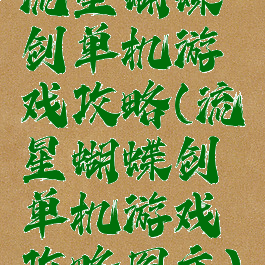 流星蝴蝶
创单机游
戏攻略(流
星蝴蝶创
单机游戏
攻略图文)